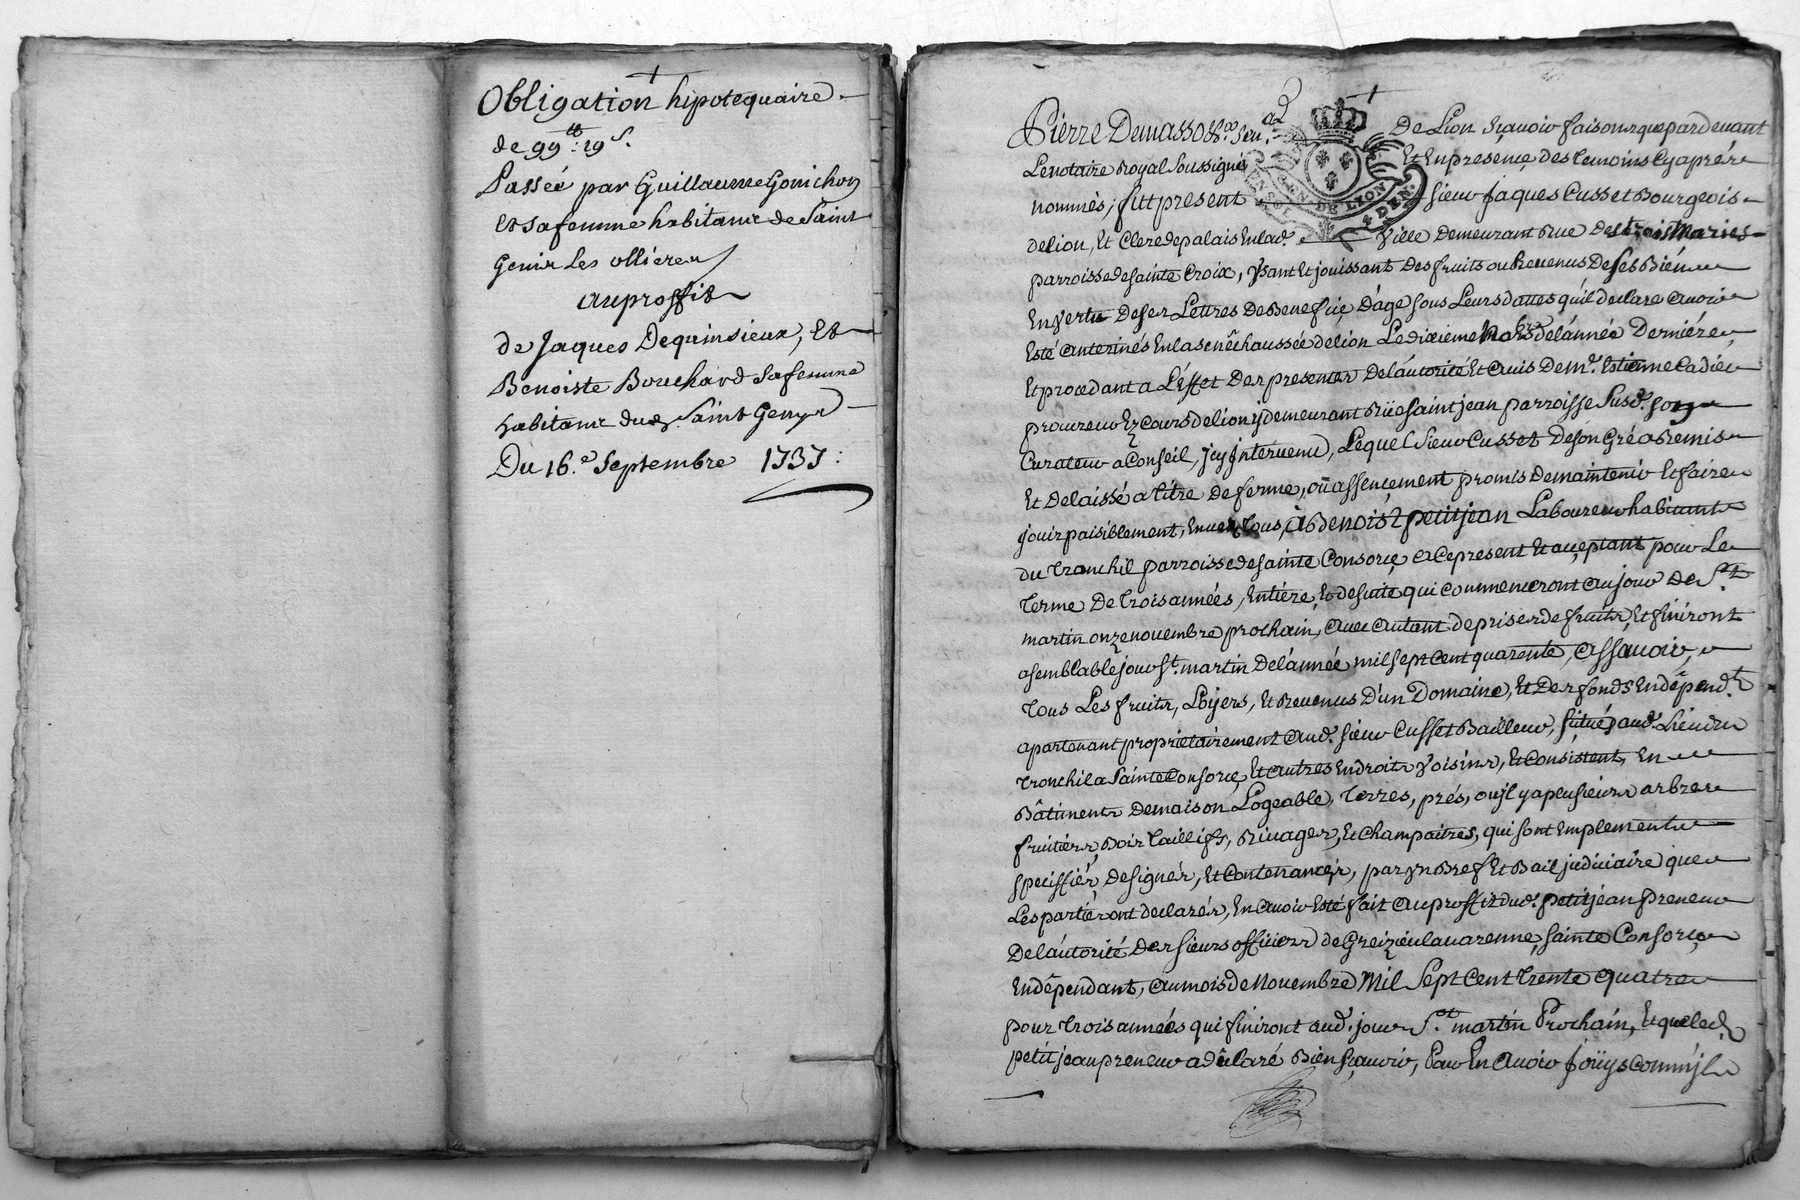 Obligation hipotequaire
de 99 tt: 19 s.
Passée par Guillaume Gonichon
Et sa femme habitans de Saint
Genis Les ollieres
au proffit
de Jaques Dequinsieux, Et
Benoiste Bouchard sa femme
habitans dud. Saint Genys
Du 16.e Septembre 1737:
Pierre Dumas De Lion sçavoir faisons que pardevant
Le notaire Royal soussigné Et En presençe des temoins Cy aprés
nommés, fut present sieur Jaques Cusset Bourgeois
de lion, Et Clerc de palais En lad. Ville Demeurant Rue Des trois Maries
parroisse de sainte Croix, Usant Et jouissant Des fruits ou Revenus De ses Biens
En Vertu De ses Lettres De Benefiçe D'age sous Leurs dattes qu'il declare avoir
Esté Enterinés En la senêchaussée de lion Le dixieme Mars de l'année Derniére
Et procedant a L'effet Des presentes De l'autorité Et avis De m.r Estienne Cadier
procureur Ez cours de lion y demeurant Rüe saint jean parroisse susd. son
Curateur a Conseil, jcy Intervenu, Lequel sieur Cusset De son Gré a Remis
Et Delaissé a titre de ferme, ou assençement promis De maintenir Et faire
jouir paisiblement, Envers tous, a Benoist petitjean Laboureur habitant
du tronchil parroisse de sainte Consorçe a Ce present Et acçeptant pour Le
terme De trois années, Entiére, Et de suite qui commençeront au jour de S.t
martin onze novembre prochain, avec autant de prises de fruits, Et finiront
a semblable jour S.t martin De l'année mil sept Cent quarente, assavoir,
tous Les fruits, Loyers, Et Revenus D'un Domaine, Et Des fonds En dêpend.t
apartenant proprietairement aud. sieur Cusset Bailleur, situés aud. Lieu du
tronchil a Sainte Consorçe, Et autres Endroits Voisins, Et Consistent, En
Bâtiments De maison Logeable, terres, prés, ou jl y a plusieurs arbres
fruitiers, Bois taillifs, Rivages, Et Champaitres, qui sont Emplement
speciffiés, Designés, Et Contenancés, par Un Bref Et Bail judiciaire que
Les parties ont declarés, En avoir Esté fait au proffit dud. petitjean preneur
De l'autorité Des sieurs officiers de Greizieu la varenne, sainte Consorçe
En dêpendant, au mois de Novembre Mil Sept Cent trente quatre
pour trois années qui finiront aud. jour S.t martin Prochain, Et que led.
petitjean preneur a dêclaré Bien sçavoir, Pour En avoir Joüys comm'jl